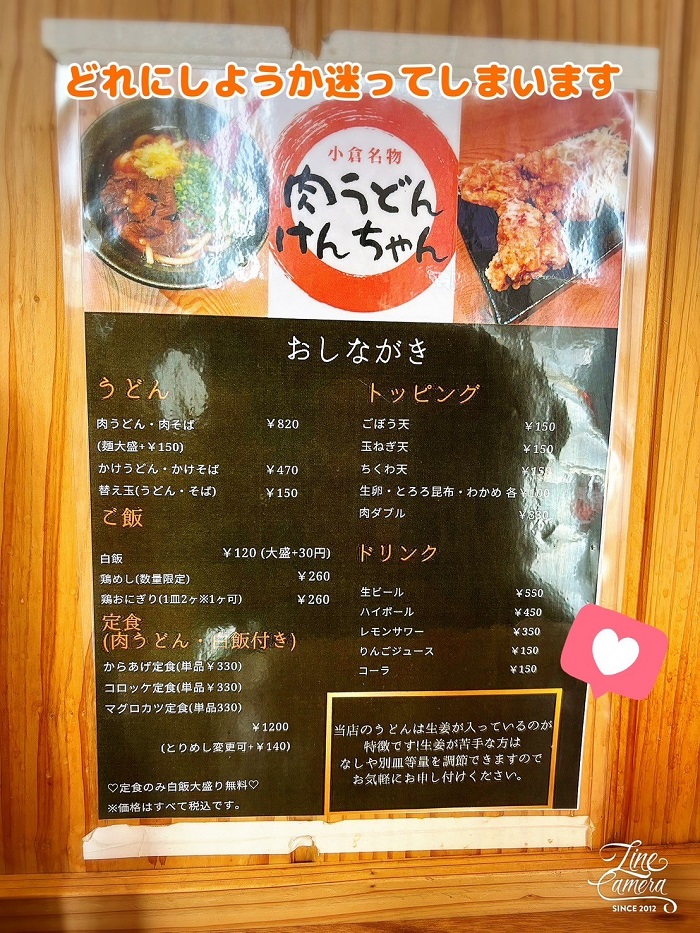 どれにしようか迷ってしまいます
小倉名物
肉うどん
けんちゃん
おしながき
うどん
肉うどん・肉そば ￥820
(麺大盛+￥150)
かけうどん・かけそば ￥470
替え玉(うどん・そば) ￥150
ご飯
白飯 ￥120 (大盛+30円)
鶏めし(数量限定) ￥260
鶏おにぎり(1皿2ヶ※1ヶ可) ￥260
定食
(肉うどん・白飯付き)
からあげ定食(単品￥330)
コロッケ定食(単品￥330)
マグロカツ定食(単品330)
￥1200
(とりめし変更可+￥140)
♡定食のみ白飯大盛り無料♡
※価格はすべて税込です。
トッピング
ごぼう天 ￥150
玉ねぎ天 ￥150
ちくわ天 ￥150
生卵・とろろ昆布・わかめ 各￥100
肉ダブル
ドリンク
生ビール ￥550
ハイボール ￥450
レモンサワー ￥350
りんごジュース ￥150
コーラ ￥150
当店のうどんは生姜が入っているのが
特徴です!生姜が苦手な方は
なしや別皿等量を調節できますので
お気軽にお申し付けください。
Line
Camera
SINCE 2012